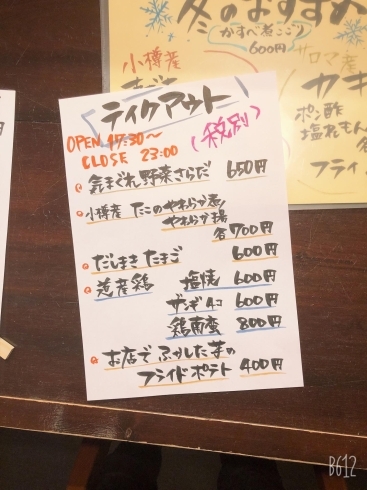 冬のおすすめ
かすべ煮こごり
600円
小樽産
サロマ産
カキ
ポン酢
塩れもん
フライ
テイクアウト
(税別)
OPEN 17:30〜
CLOSE 23:00
気まぐれ野菜さらだ 650円
小樽産 たこのやわらか煮
やわらか揚
各700円
だしまきたまご 600円
道産鶏 塩焼 600円
ザンギ4コ 600円
鶏南蛮 800円
お店でふかした芋の
フライドポテト 400円
B612